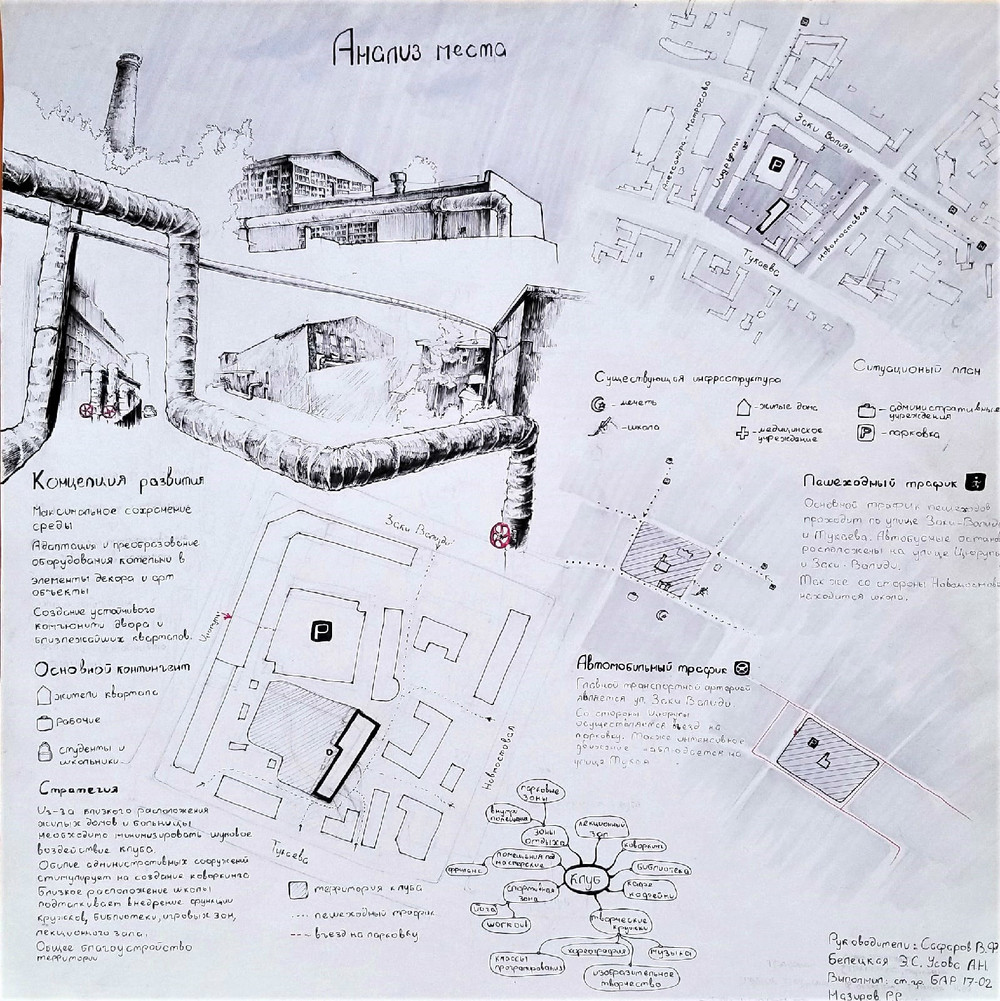 Анализ места
Александра Матросова
Цюрупы
Заки Валиди
P
Новомостовая
Тукаева
Ситуационый план
Существующая инфраструктура
- мечеть
- школа
- жилые дома
- медицинское
учреждение
- административные
учреждения
P - парковка
Концепция развития
Максимальное сохранение
среды
Адаптация и преобразование
оборудования котельни в
элементы декора и арт
объекты
Создание устойчивого
комьюнити двора и
близлежайших кварталов.
Основной контингент
жители квартала
рабочие
студенты и
школьники
Стратегия
Из-за близкого расположения
жилых домов и больницы
необходимо минимизировать шумовое
воздействие клуба.
Обилие административных сооружений
стимулирует на создание коворкинга
Близкое расположение школы
подталкивает внедрение функции
кружков, библиотеки, игровых зон,
лекционного зала.
Общее благоустройство
территории
Заки Валиди
Цюрупы
P
Новомостовая
Тукаева
территория клуба
пешеходный трафик
въезд на парковку
Пешеходный трафик
Основной трафик пешеходов
проходит по улице Заки-Валиди
и Тукаева. Автобусные
расположены на улице Цюрупы
и Заки-Валиди.
Также со стороны
находится школа.
Автомобильный трафик
Главной транспортной арторией
является ул. Заки Валиди.
Со стороны Цюрупы
осуществляется въезд на
парковку. Также интенсивное
движение наблюдается на
улице
P
парковые
зоны
внутри
помещения
зоны
отдыха
лекционный
зал
коворкинг
помещения под
мастерские
библиотека
фитнес
спортивная
зона
клуб
кафе
кофейни
йога
workout
творческие
кружки
хореография
музыка
классы
програмирования
изобразительное
творчество
Руководители: Сафаров В.Ф
Белецкая Э.С. Усова А.Н.
Выполнил: ст. гр. БАР 17-02
Мазиров Р.Р.